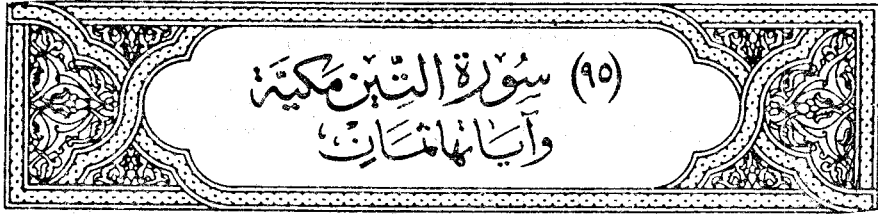 (٩٥) سُوْرَةُ التِّيْنِ مَكيَّة
وَآيَاتُهَا ثَمَانِ